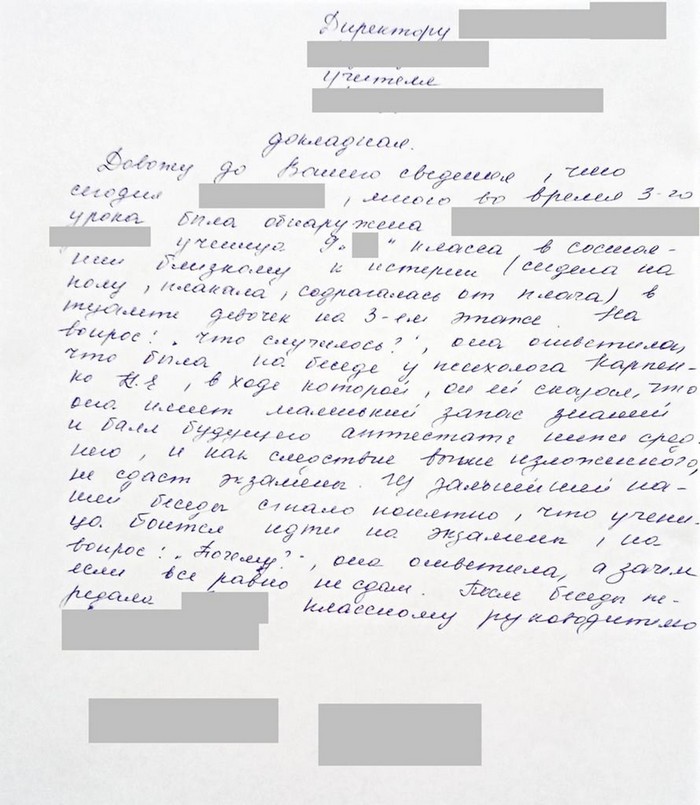 Директору
учителя
докладная.
Довожу до Вашего сведения, что
сегодня , мною во время 3-го
урока была обнаружена
ученица 9 „ " класса в состоя-
нии близкому к истерии (сидела на
полу, плакала, содрагалась от плача) в
туалете девочек на 3-ем этаже. На
вопрос: „Что случилось?", она ответила,
что была на беседе у психолога Карпен-
ко Н.Е, в ходе которой, он ей сказал, что
она имеет маленький запас знаний
и балл будущего аттестата ниже сред-
него, и как следствие выше изложенного,
не сдаст экзамены. Из дальнейшей на-
шей беседы стало понятно, что учени-
ца боится идти на экзамены, на
вопрос: „Почему?", она ответила, а зачем
если все равно не сдам. После беседы пе-
редала классному руководителю